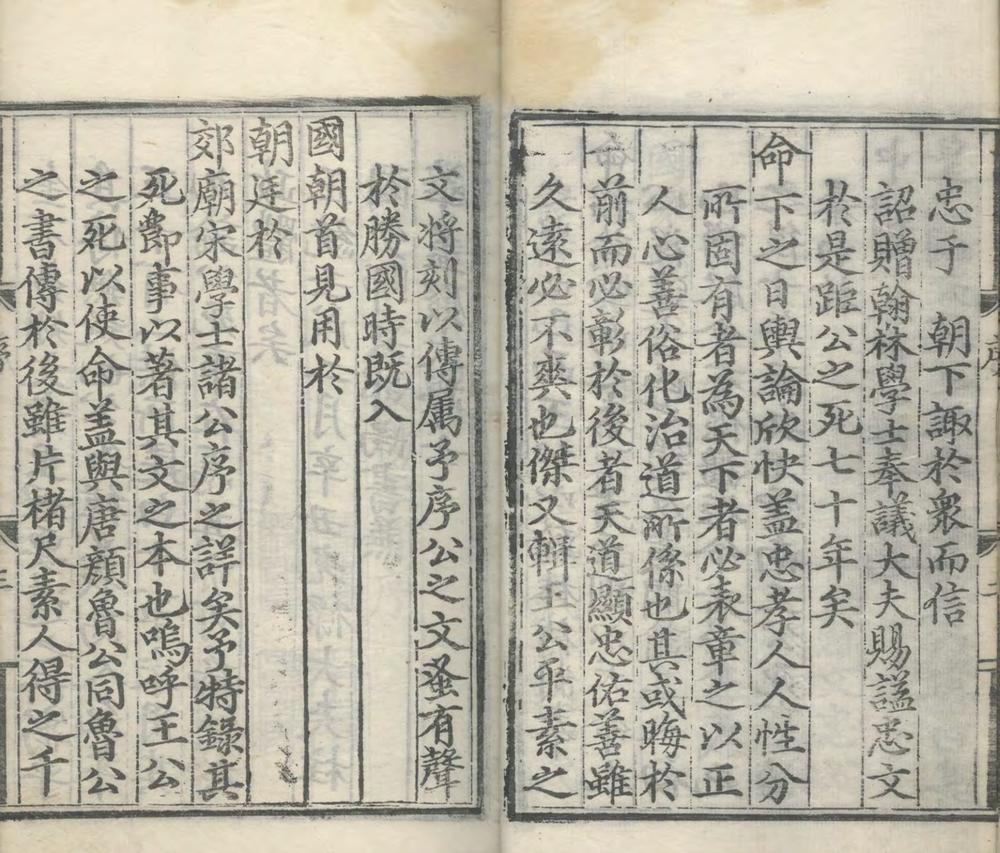 忠于　朝下諏於衆而信
詔贈翰林學士奉議大夫賜謚忠文
於是距公之死七十年矣
命下之日輿論欣快盖忠孝人人性分
所固有者為天下者必表章之以正
人心善俗化治道所係也其或晦於
前而必彰於後者天道顯忠佑善雖
久遠必不爽也傑又輯王公平素之
文將刻以傳属予序公之文蚤有聲
於勝國時既入
國朝首見用於
朝廷於
郊廟宋學士諸公序之詳矣予特錄其
死節事以著其文之本也嗚呼王公
之死以使命盖與唐顔魯公同魯公
之書傳於後雖片楮尺素人得之千